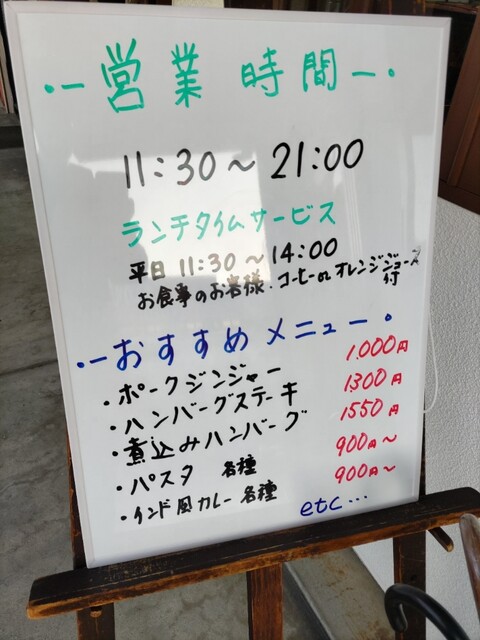 ・ー営業 時間ー・
11:30～21:00
ランチタイムサービス
平日 11:30～14:00
お食事のお客様・コーヒーorオレンジジュース付
・ーおすすめメニュー・
・ポークジンジャー 1.000円
・ハンバーグステーキ 1300円
・煮込みハンバーグ 1550円
・パスタ 各種 900円～
・インド風カレー各種 900円～
etc...